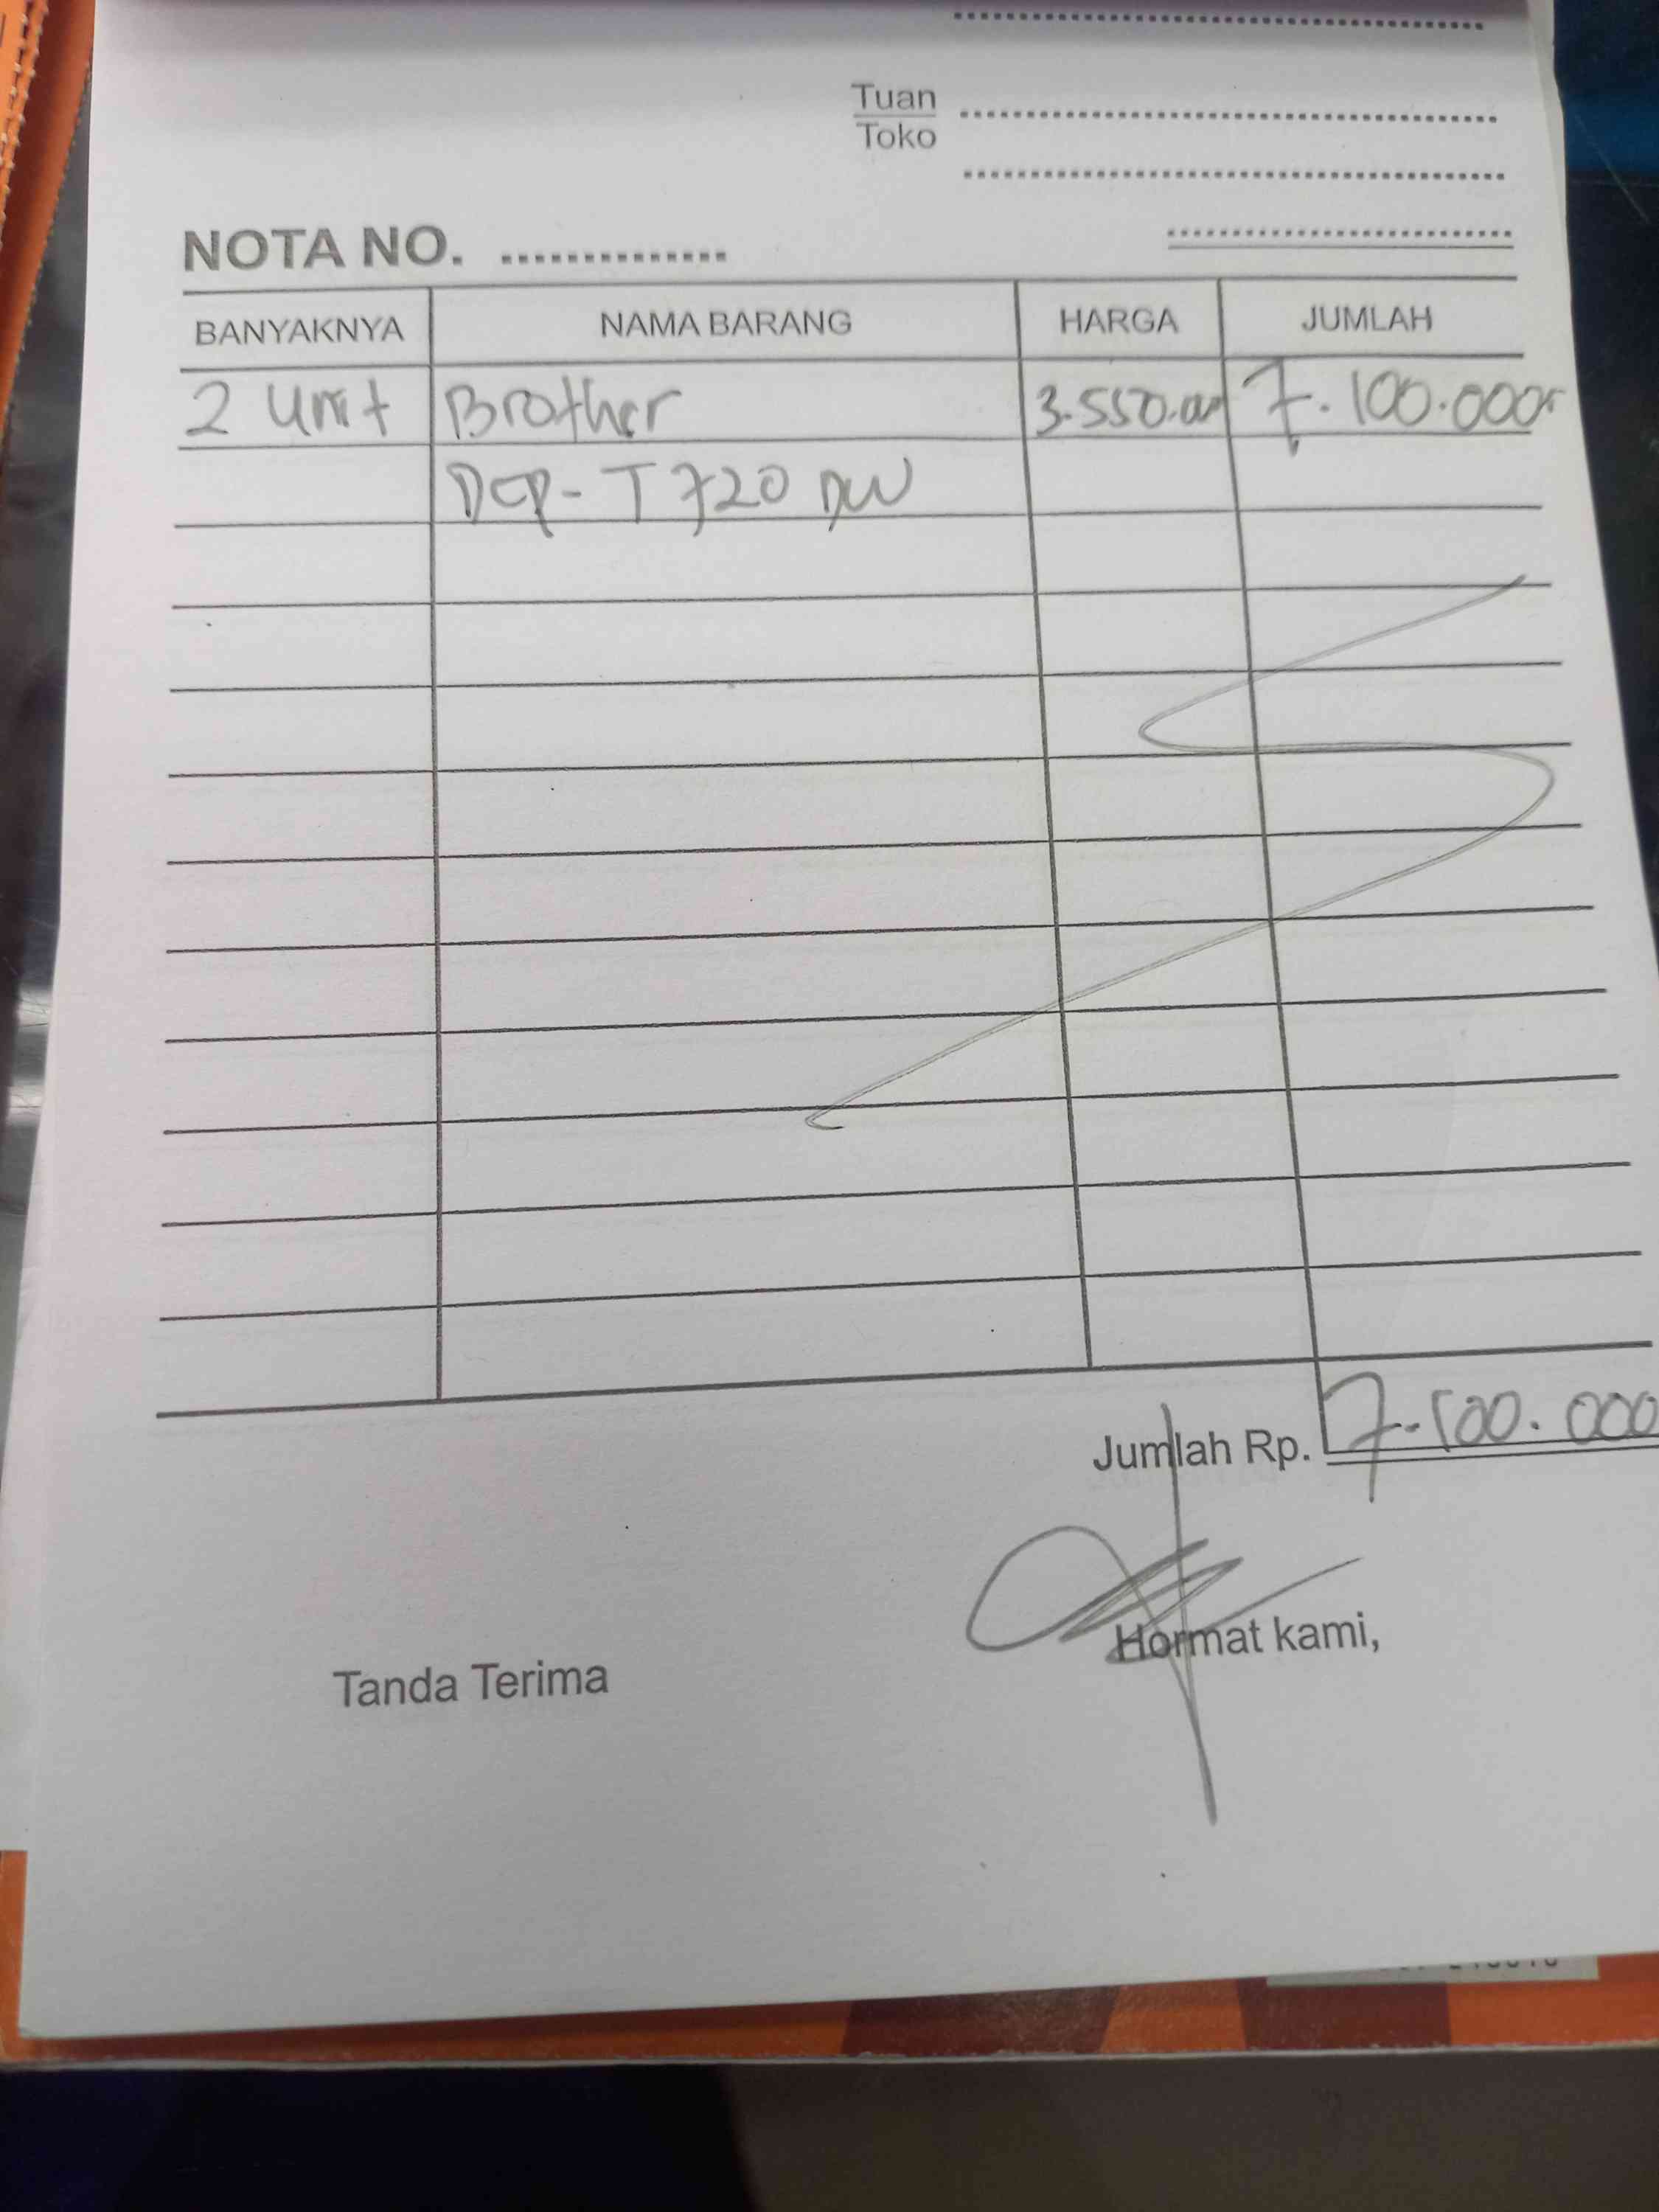 Tuan
Toko
NOTA NO.
BANYAKNYA NAMA BARANG HARGA JUMLAH
2 Unit Brother 3.550.000 7.100.000
DCP-T720 DW
Jumlah Rp. 7.100.000
Hormat kami,
Tanda Terima